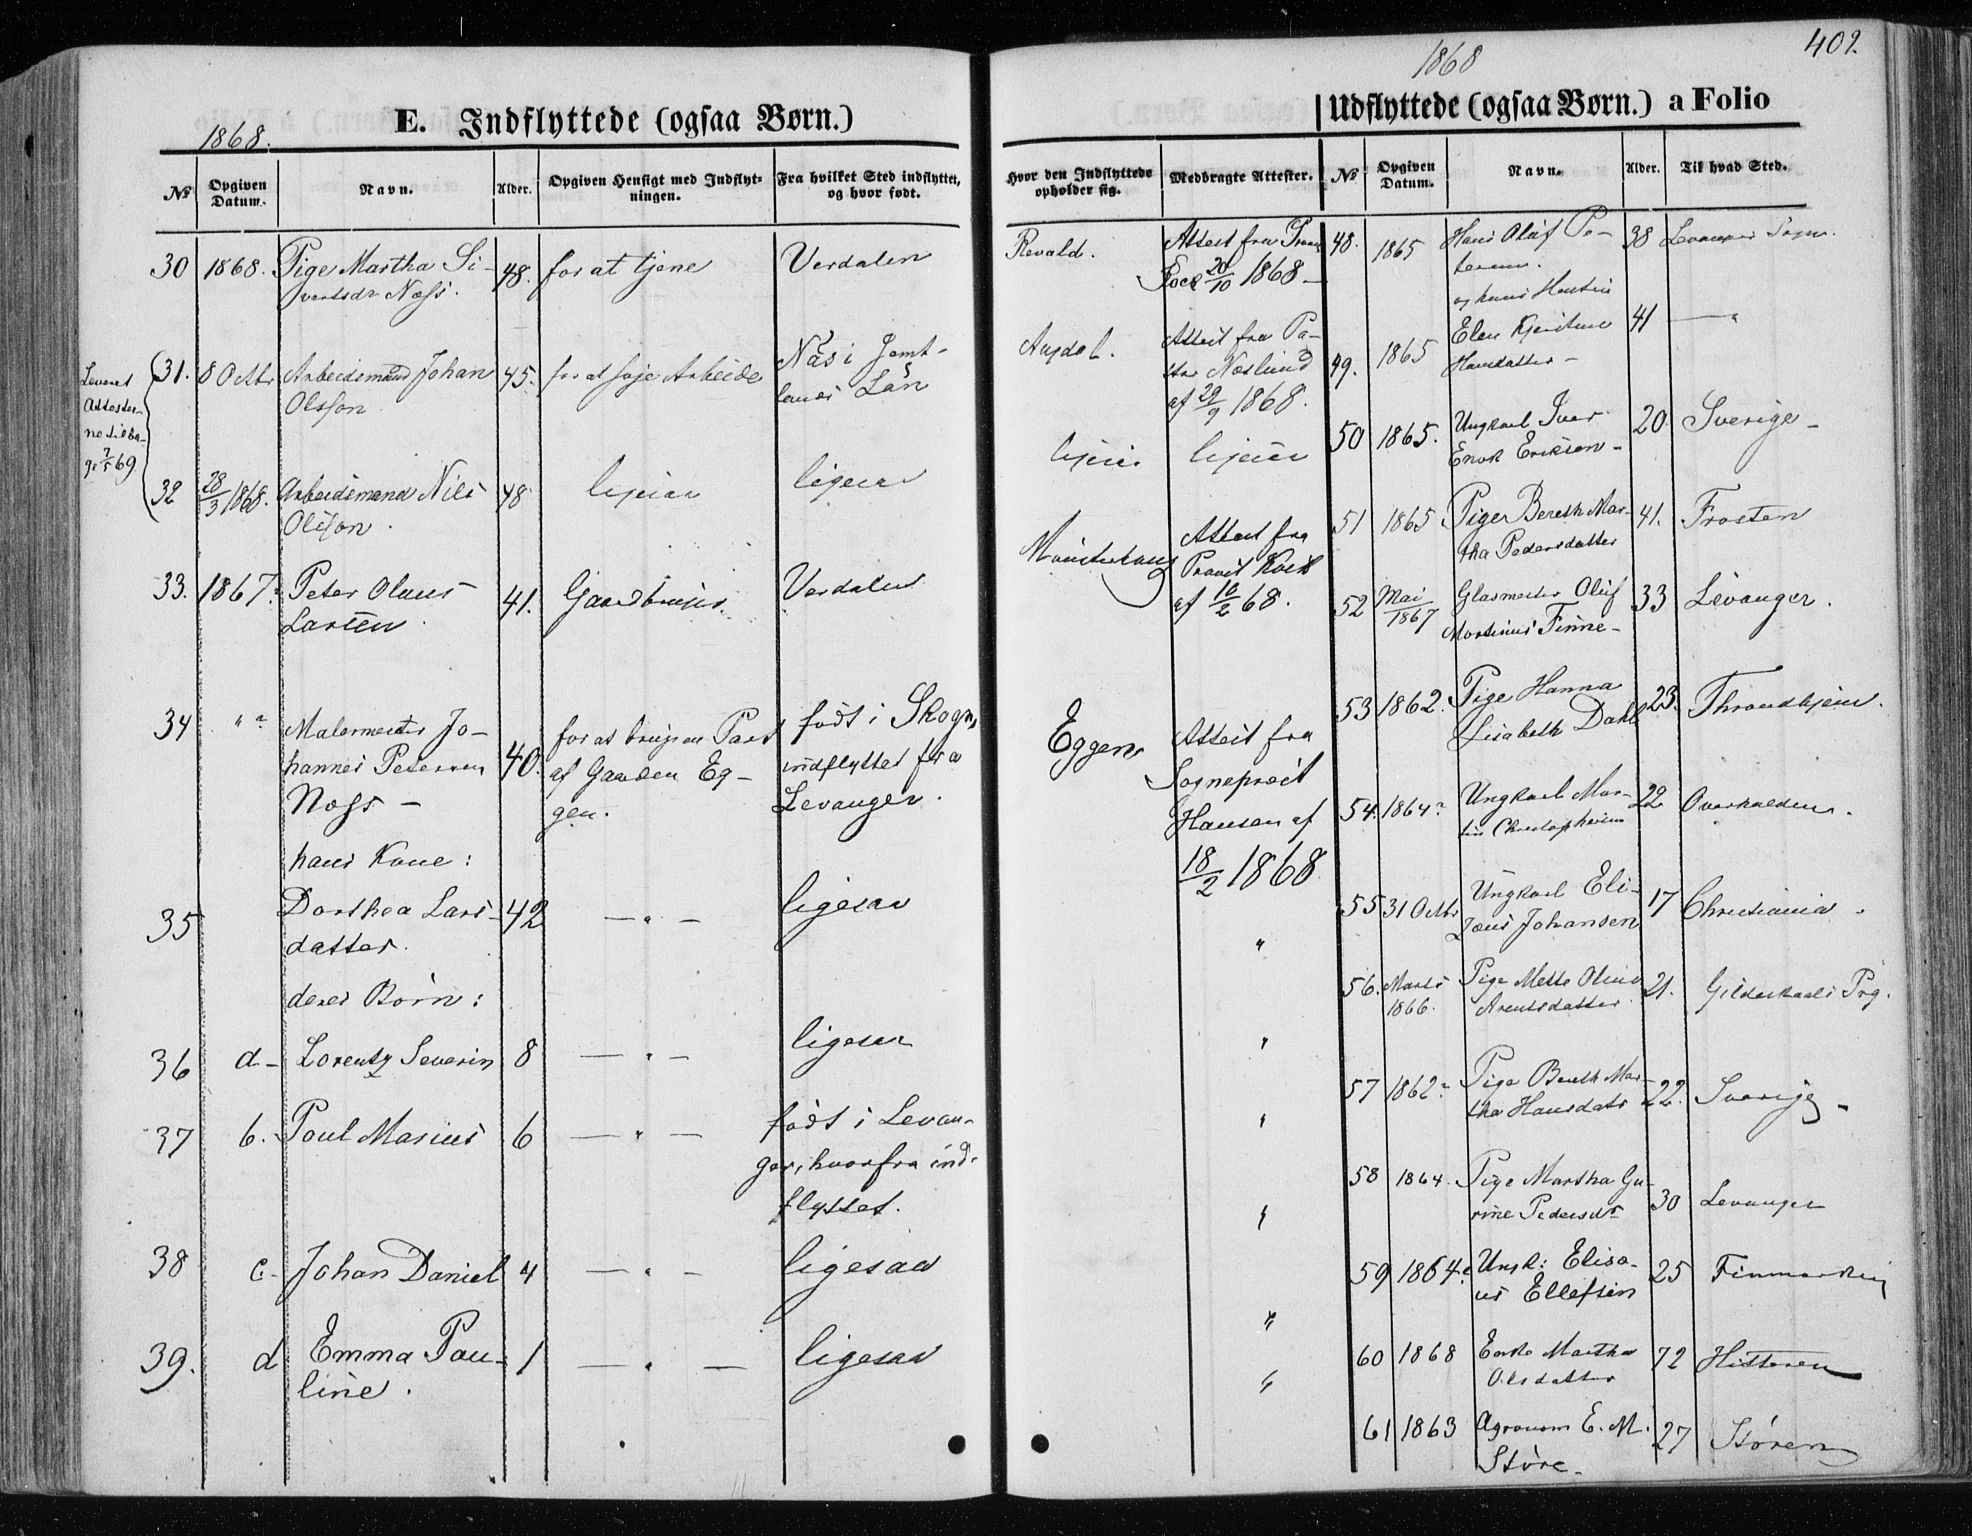 402
1868.
E. Indflyttede (ogsaa Børn.)
1868
Udflyttede (ogsaa Børn.) a Folio
No
Opgiven Datum.
Navn.
Alder.
Opgiven Hensigt med Indflytningen.
Fra hvilket Sted indflyttet, og hvor født.
Hvor den Indflyttede opholder sig.
Medbragte Attester.
No
Opgiven Datum.
Navn.
Alder.
Til hvad Sted.
30 1868. Pige Martha Si- 48. for at tjene Verdalen
vertsdr Næss.
Attest fra
20/10 1868 -
Leveret
Attester-
ne tilba-
ge 7/5 69
31. 8 Octbr Arbeidsmand Johan 45. for at søge Arbeide Näs i Jemt-
Olsson lands Län
Attest fra Pa-
stor Næslund
af 29/9 1868.
32 28/3 1868. Arbeidsmand Nils 48 ligesaa ligesaa
Olsson.
ligesaa ligesaa
33. 1867? Peter Olaus 41. Gaardbruger Verdalen
Larsen.
Attest fra
Provst
af 16/2 68.
34 " " Malermester Jo- 40. for at bruge en Part født i Skogn,
hannes Petersen af Gaarden Eg- indflyttet fra
Næss - gen. Levanger.
Eggen. Attest fra
Sogneprest
Hansen af
18/2 1868
hans Kone:
35 Dorthea Lars- 42 — " — ligesaa "
datter.
deres Børn:
36 a - Lorentz Severin 8 — " — ligesaa "
37 b. Poul Marius 6 — " — født i Levan- "
ger, hvorfra ind-
flyttet. "
38 c - Johan Daniel 4 — " — ligesaa "
39. d Emma Pau- 1 — " — ligesaa "
line.
48. 1865 Hans Oluf Pe- 38 Levanger Sogn.
tersen.
og hans Hustru
49. 1865 Elen Kjerstine 41 — "
Hansdatter -
50 1865. Ungkarl Iver 20. Sverige -
Enok Eriksen -
51 1865 Pige Bereth Mar- 41. Frosten
tha Pedersdatter
52 Mai 1867 Glasmester Oluf 33 Levanger.
Martinus Finne -
53 1862. Pige Hanna 23. Throndhjem.
Lisabeth Dahl
54. 1864? Ungkarl Mar- 22 Overhalden.
tin Christophersen
55 31 Octbr Ungkarl Eli- 17 Christiania.
Johansen
56. Marts 1866. Pige Mette Olina 21. Gildeskaals Prg.
Arentsdatter.
57 1862? Pige Bereth Mar- 22. Sverige -
tha Hansdatr
58 1864. Pige Martha Gu- 30 Levanger
rine Pedersdr
59 1864? Ungk: Elisæ- 25 Finmarken
us Ellefsen
60 1868 Enke Martha 72 Hitteren
Olsdatter
61 1863 Agronom E. M. 27 Støren
Støre -